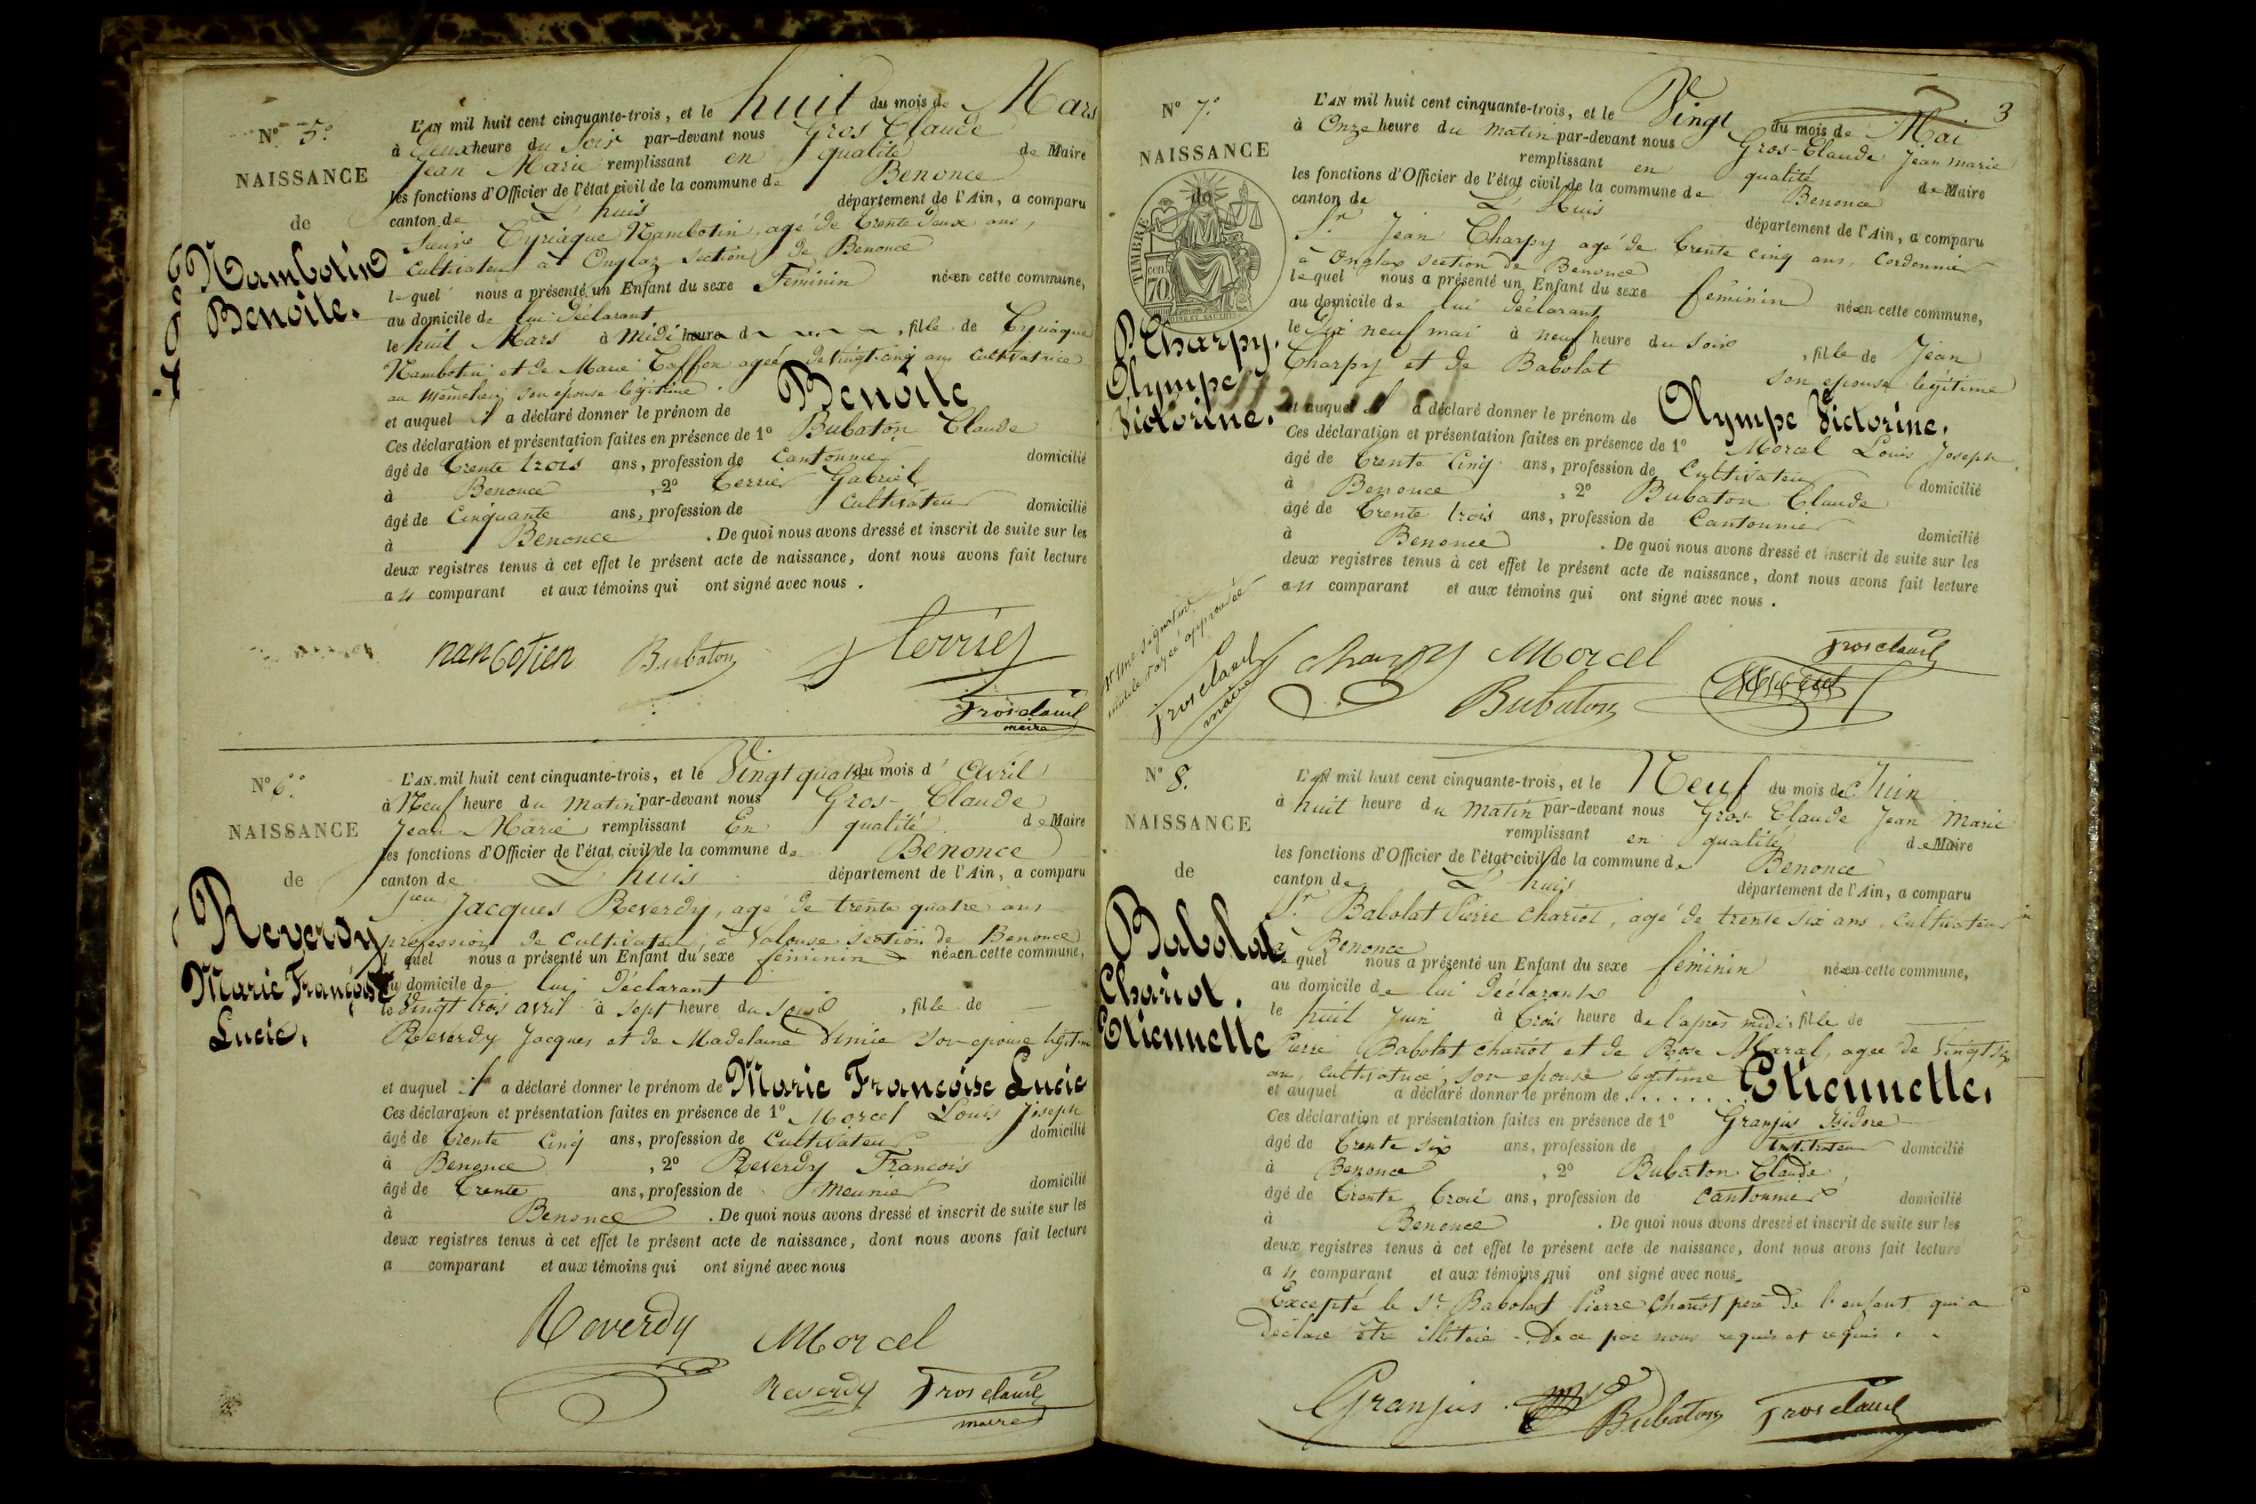 N° 5°
NAISSANCE
de
Nambotin
Benoite.
L'AN mil huit cent cinquante-trois, et le huit du mois de Mars
à deux heure du soir par-devant nous Gros Claude
Jean Marie remplissant en qualité de Maire
les fonctions d'Officier de l'état civil de la commune de Benonce
canton de L'huis département de l'Ain, a comparu
Cyriaque Nambotin, agé de trente deux ans,
cultivateur à Onglaz section de Benonce
lequel nous a présenté un Enfant du sexe Féminin né en cette commune,
au domicile de lui déclarant
le huit Mars à midi heure d , fille de Cyriaque
Nambotin et de Marie agée de vingt cinq ans cultivatrice
au même lieu son épouse légitime.
et auquel il a déclaré donner le prénom de Benoite
Ces déclaration et présentation faites en présence de 1° Bubaton Claude
âgé de trente trois ans, profession de Cantonnier domicilié
à Benonce , 2° Terrier Gabriel
âgé de Cinquante ans, profession de cultivateur domicilié
à Benonce . De quoi nous avons dressé et inscrit de suite sur les
deux registres tenus à cet effet le présent acte de naissance, dont nous avons fait lecture
au comparant et aux témoins qui ont signé avec nous .
Bubaton terrier
Grosclaude
maire
N° 6°.
NAISSANCE
de
Reverdy
Marie Françoise
Lucie.
L'AN mil huit cent cinquante-trois, et le Vingt quatre du mois d' Avril
à Neuf heure du matin par-devant nous Gros-Claude
Jean Marie remplissant En qualité de Maire
les fonctions d'Officier de l'état civil de la commune de Benonce
canton de L'huis département de l'Ain, a comparu
Jacques Reverdy, agé de trente quatre ans
profession de cultivateur, à Valouse section de Benonce
lequel nous a présenté un Enfant du sexe féminin né en cette commune,
au domicile de lui déclarant
le Vingt trois avril à sept heure du soir , fille de
Reverdy Jacques et de Madelaine son épouse légitime
et auquel il a déclaré donner le prénom de Marie Françoise Lucie
Ces déclaration et présentation faites en présence de 1° Morcel Louis Joseph
âgé de trente cinq ans, profession de Cultivateur domicilié
à Benonce , 2° Reverdy François
âgé de trente ans, profession de meunier domicilié
à Benonce . De quoi nous avons dressé et inscrit de suite sur les
deux registres tenus à cet effet le présent acte de naissance, dont nous avons fait lecture
a comparant et aux témoins qui ont signé avec nous
Reverdy Morcel
Reverdy Grosclaude
maire
3
N° 7°.
NAISSANCE
de
TIMBRE
70
Charpy.
Olympe
Victorine.
L'AN mil huit cent cinquante-trois, et le Vingt du mois de Mai
à Onze heure du matin par-devant nous Gros-Claude Jean marie
remplissant en qualité de Maire
les fonctions d'Officier de l'état civil de la commune de Benonce
canton de L'huis département de l'Ain, a comparu
Sr. Jean Charpy agé de trente cinq ans, cordonnier
à Onglax section de Benonce
lequel nous a présenté un Enfant du sexe féminin né en cette commune,
au domicile de lui déclarant
le dix neuf mai à neuf heure du soir , fille de Jean
Charpy et de Babolat son épouse légitime
et auquel il a déclaré donner le prénom de Olympe Victorine.
Ces déclaration et présentation faites en présence de 1° Morcel Louis Joseph
âgé de trente cinq ans, profession de cultivateur domicilié
à Benonce , 2° Bubaton Claude
âgé de trente trois ans, profession de Cantonnier domicilié
à Benonce . De quoi nous avons dressé et inscrit de suite sur les
deux registres tenus à cet effet le présent acte de naissance, dont nous avons fait lecture
au comparant et aux témoins qui ont signé avec nous .
une signature
inutile rayée approuvée
Grosclaude
maire
Charpy Morcel Grosclaude
Bubaton
N° 8.
NAISSANCE
de
Babolat
Chariot.
Etiennette
L'AN mil huit cent cinquante-trois, et le Neuf du mois de Juin
à huit heure du matin par-devant nous Gros-Claude Jean Marie
remplissant en qualité de Maire
les fonctions d'Officier de l'état civil de la commune de Benonce
canton de L'huis département de l'Ain, a comparu
Sr. Babolat Pierre chariot, agé de trente six ans, cultivateur
à Benonce
lequel nous a présenté un Enfant du sexe féminin né en cette commune,
au domicile de lui déclarant
le huit juin à trois heure de l'après midi, fille de
Pierre Babolat chariot et de Rose Maral, agée de vingt six
ans, cultivatrice, son épouse légitime
et auquel a déclaré donner le prénom de . . . . . . . Etiennette.
Ces déclaration et présentation faites en présence de 1° Granjus Isidore
âgé de trente six ans, profession de Instituteur domicilié
à Benonce , 2° Bubaton Claude
âgé de trente trois ans, profession de cantonnier domicilié
à Benonce . De quoi nous avons dressé et inscrit de suite sur les
deux registres tenus à cet effet le présent acte de naissance, dont nous avons fait lecture
au comparant et aux témoins qui ont signé avec nous
Excepté le Sr Babolat Pierre Chariot père de l'enfant qui a
déclaré être illitéré - De ce par nous requis et requis . -
Granjus Bubaton Grosclaude